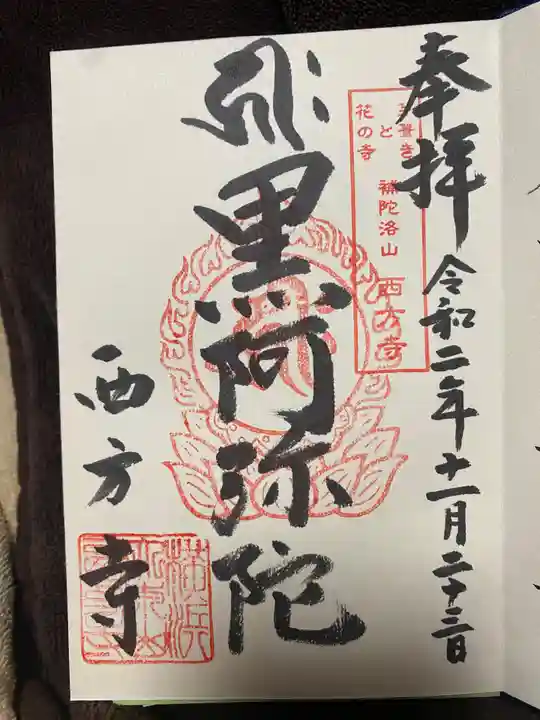 奉拝
令和二年十一月二十三日
茅葺き
と
花の寺
補陀洛山 西方寺
黒阿弥陀
西方寺